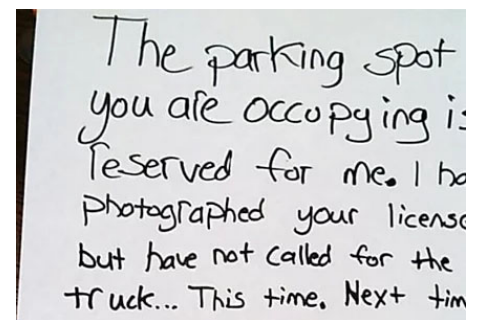 The parking spot
you are occupying is
reserved for me. I ha
photographed your licens
but have not called for the
truck... This time. Next tim